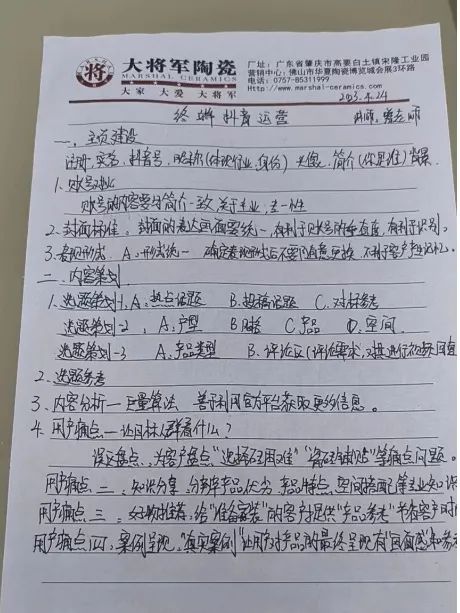 大将军陶瓷
MARSHAL CERAMICS
大家 大爱 大将军
厂址：广东省肇庆市高要白土镇宋隆工业园
营销中心：佛山市华夏陶瓷博览城会展3环路
电话：0757-85311999
Http://www.marshal-ceramics.com
终端抖音运营
一、主页建设
注册，实名，抖音号，昵称(体现行业,身份) 头像，简介(你是谁)背景
1.账号对比
账号的内容要与简介一致，关于专业，专一性
2.封面标准，封面的表达画面要统一，有利于账号的垂直度，有利于识别。
3.表现形式，A、形式统一 确定表现形式后不要随意更换，不利于客户产生记忆。
二、内容策划
1.选题策划-1，A、热点话题 B.投稿话题 C.对标参考
选题策划-2，A、户型 B风格 C产品 D.空间
选题策划-3 A、产品类型 B.评论区(评论需求，对其进行视频回复
2.选题参考
3、内容分析一巨量算法 善于利用官方平台获取更多信息。
4.用户痛点一让目标人群看什么？
误区盘点，为客户盘点"选择砖困难""瓷砖铺贴"等痛点问题。
用户痛点二：知识分享，分辨产品优劣，产品特点，空间搭配等专业知识
用户痛点三：好物推荐，给"准备装"的客户提供"产品参考"
用户痛点四，案例呈现，"真实案例"让用户对产品的最终呈现有"画面感"和参考